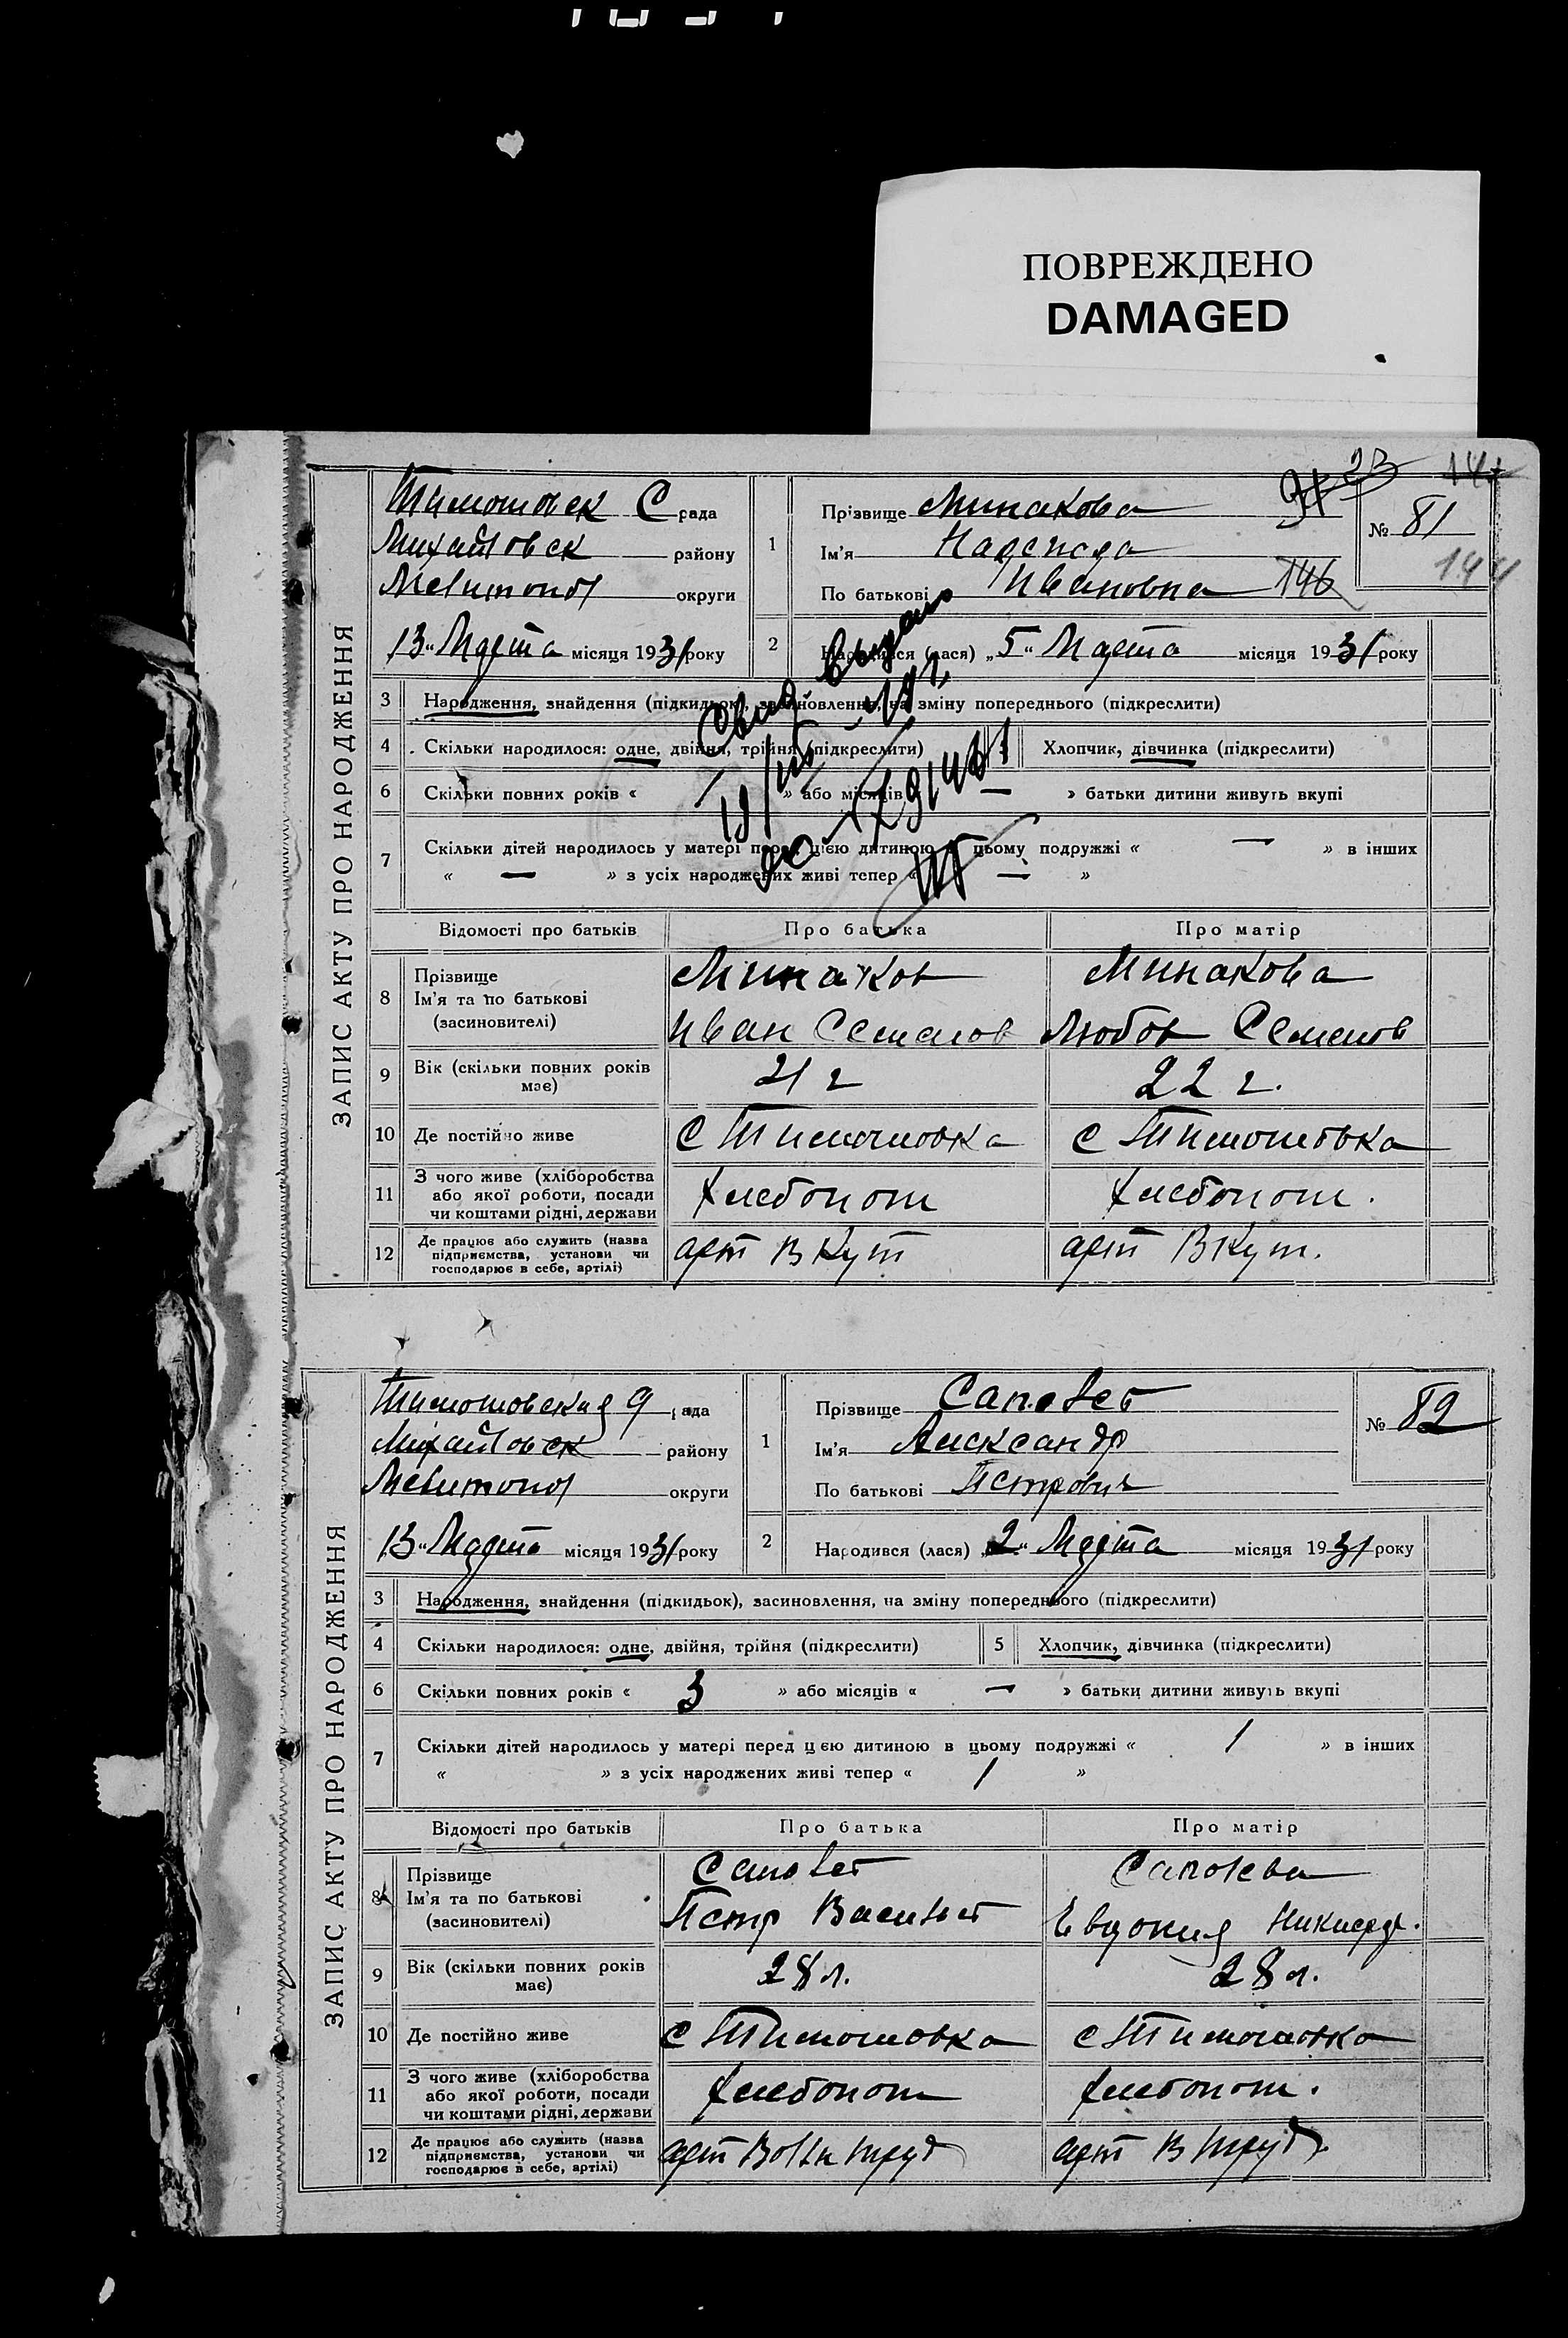 ПОВРЕЖДЕНО
DAMAGED
ЗАПИС АКТУ ПРО НАРОДЖЕННЯ
23
Тимошовск С рада
Михайловск району
Мелитопол округи
13 „ Марта місяця 1931 року
1 Прізвище Минакова
Ім'я Надежда
По батькові Ивановна
№ 81
146
144
2 Народився (лася) „5“ Марта місяця 1931 року
3 Народження, знайдення (підкидьок), засиновлення, на зміну попереднього (підкреслити)
4 Скільки народилося: одне, двійня, трійня (підкреслити) Хлопчик, дівчинка (підкреслити)
6 Скільки повних років « — » або місяців — » батьки дитини живуть вкупі
7 Скільки дітей народилось у матері перед цією дитиною в цьому подружжі « — » в інших
« — » з усіх народжених живі тепер « — »
Свид. выдано
Відомості про батьків Про батька Про матір
8 Прізвище Минаков Минакова
Ім'я та по батькові
(засиновителі) Иван Семенов Любов Семенов
9 Вік (скільки повних років має) 21 г 22 г.
10 Де постійно живе с Тимошовка с Тимошовка
11 З чого живе (хліборобства або якої роботи, посади чи коштами рідні, держави Хлебопаш Хлебопаш.
12 Де працює або служить (назва підприємства, установи чи господарює в себе, артілі) арт В Кут арт В Кут.
ЗАПИС АКТУ ПРО НАРОДЖЕННЯ
Тимошовская рада
Михайловск району
Мелитопол округи
13 „ Марта місяця 1931 року
1 Прізвище Саполев
Ім'я Александр
По батькові Петрович
№ 82
2 Народився (лася) „2“ Марта місяця 1931 року
3 Народження, знайдення (підкидьок), засиновлення, на зміну попереднього (підкреслити)
4 Скільки народилося: одне, двійня, трійня (підкреслити) 5 Хлопчик, дівчинка (підкреслити)
6 Скільки повних років « 3 » або місяців « — » батьки дитини живуть вкупі
7 Скільки дітей народилось у матері перед цією дитиною в цьому подружжі « 1 » в інших
« » з усіх народжених живі тепер « 1 »
Відомості про батьків Про батька Про матір
8 Прізвище Саполев Саполева
Ім'я та по батькові
(засиновителі) Петр Васильев Евдокия Никифор.
9 Вік (скільки повних років має) 28 л. 28 л.
10 Де постійно живе с Тимошовка с Тимошовка
11 З чого живе (хліборобства або якої роботи, посади чи коштами рідні, держави Хлебопаш Хлебопаш.
12 Де працює або служить (назва підприємства, установи чи господарює в себе, артілі) арт Волн Труд арт В Труд.